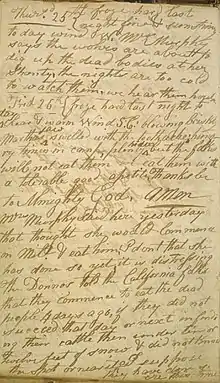 Thursd. 25th froze hard last
night fine & sunshiny
to day wind W. Mrs Murphy
says the wolves are about to
dig up the dead bodies at her
Shanty, the nights are too cold
to watch them, we hear them howl
Frid 26th froze hard last night to
day clear & warm Wind S.E. blowing brisk
Marthas jaw swelled with the toothache; hungry
times in camp, plenty hides but the folks
will not eat them we eat them with
a tolerable good apetite. Thanks be
to Almighty God. Amen
Mrs Murphy said here yesterday
that thought she would commence
on Milt. & eat him. I dont that she
has done so yet, it is distressing
the Donnos told the California folks
that they commence to eat the dead
people 4 days ago, if they did not
succeed that day or next in finding
their cattle then under ten or
twelve feet of snow & did not know
the spot or near it, I suppose
they have done so